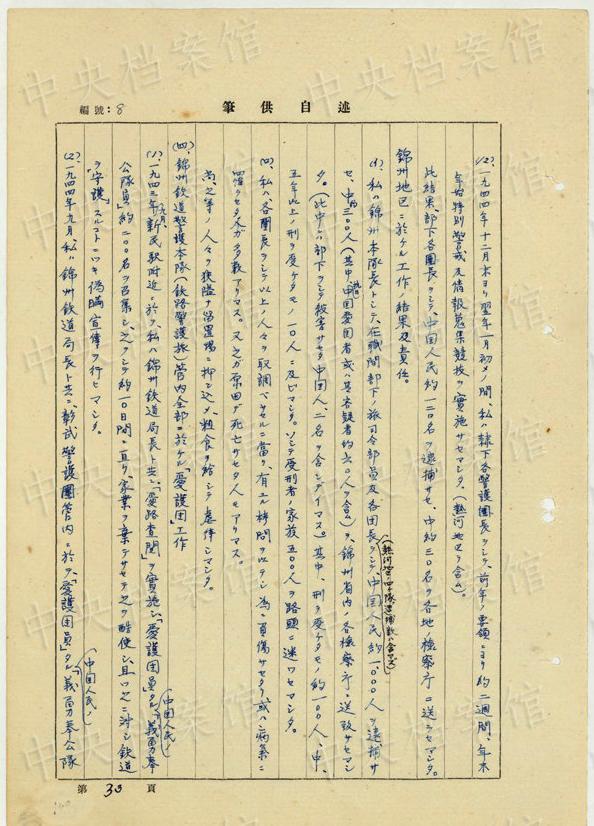 編號:8
述自供筆
(2)、一九四四年十二月末ヨリ翌年一月初メノ間、私ハ隷下各警護團長ヲシテ、前年ノ要領ニヨリ約二週間、年末
年始特別警戒及情報蒐集競技ヲ実施サセマシタ。(熱河地区ヲ含ム)。
此結果、部下各團長ヲシテ、中国人民約一二〇名ヲ逮捕サセ、中約三〇名ヲ各地ノ検察庁ニ送ラセマシタ。
錦州地区ニ於ケル工作ノ結果及責任。
(1)、私ハ錦州本隊長トシテ、在職間部下ノ旅司令部員及各団長ヲシテ、中国人民約一、〇〇〇人ヲ逮捕サ
(熱河地区ノ四ケ隊逮捕数ハ含マズ)
セ、中約三〇〇人(其中中国愛国者或ハ其容疑者約六〇人ヲ含ム)ヲ、錦州省内ノ各検察庁ニ送致サセマシ
タ。(此中ニハ部下ヲシテ被害サセタ中国人、二名ヲ含ンデイマス)。其中、刑ヲ受ケタモノ約一〇〇人、中、
五年以上ノ刑ヲ受ケタモノ一〇人ニ及ビマシタ。ソシテ受刑者ノ家族五〇〇人ヲ路頭ニ迷ワセマシタ。
(2)、私ハ、各團長ヲシテ以上ノ人々ヲ取調ベサセルニ当リ、有ユル拷問ヲ以テシ為ニ負傷サセタリ或ハ病気ニ
罹ラセタ人ガ多数アリマス。又之ガ原因デ死亡サセタ人モアリマス。
尚、之等ノ人々ヲ狭隘ナ留置場ニ押シ込メ、粗食ヲ給シテ虐待シマシタ。
(四)、錦州鉄道警護本隊(鉄路警護旅)管内全部ニ於ケル「愛護団」工作
(1)、一九四三年九月新民駅附近ニ於テ、私ハ錦州鉄道局長ト共ニ「愛路査閲」ヲ実施シ、「愛護団員」タル「義勇奉
(中国人民ノ)
公隊員」約二〇〇名ヲ召集シ、之ヲシテ約一〇日間ニ亘リ、家業ヲ棄テサセテ之ヲ酷使シ、且ツ之ニ対シ鉄道
ヲ「守護」スルコトニツキ偽瞞宣傳ヲ行ヒマシタ。
(2)、一九四四年九月、私ハ錦州鉄道局長ト共ニ、彰武警護團管内ニ於テ、「愛護団員」タル「義勇奉公隊
(中国人民ノ)
第33頁
中央档案馆